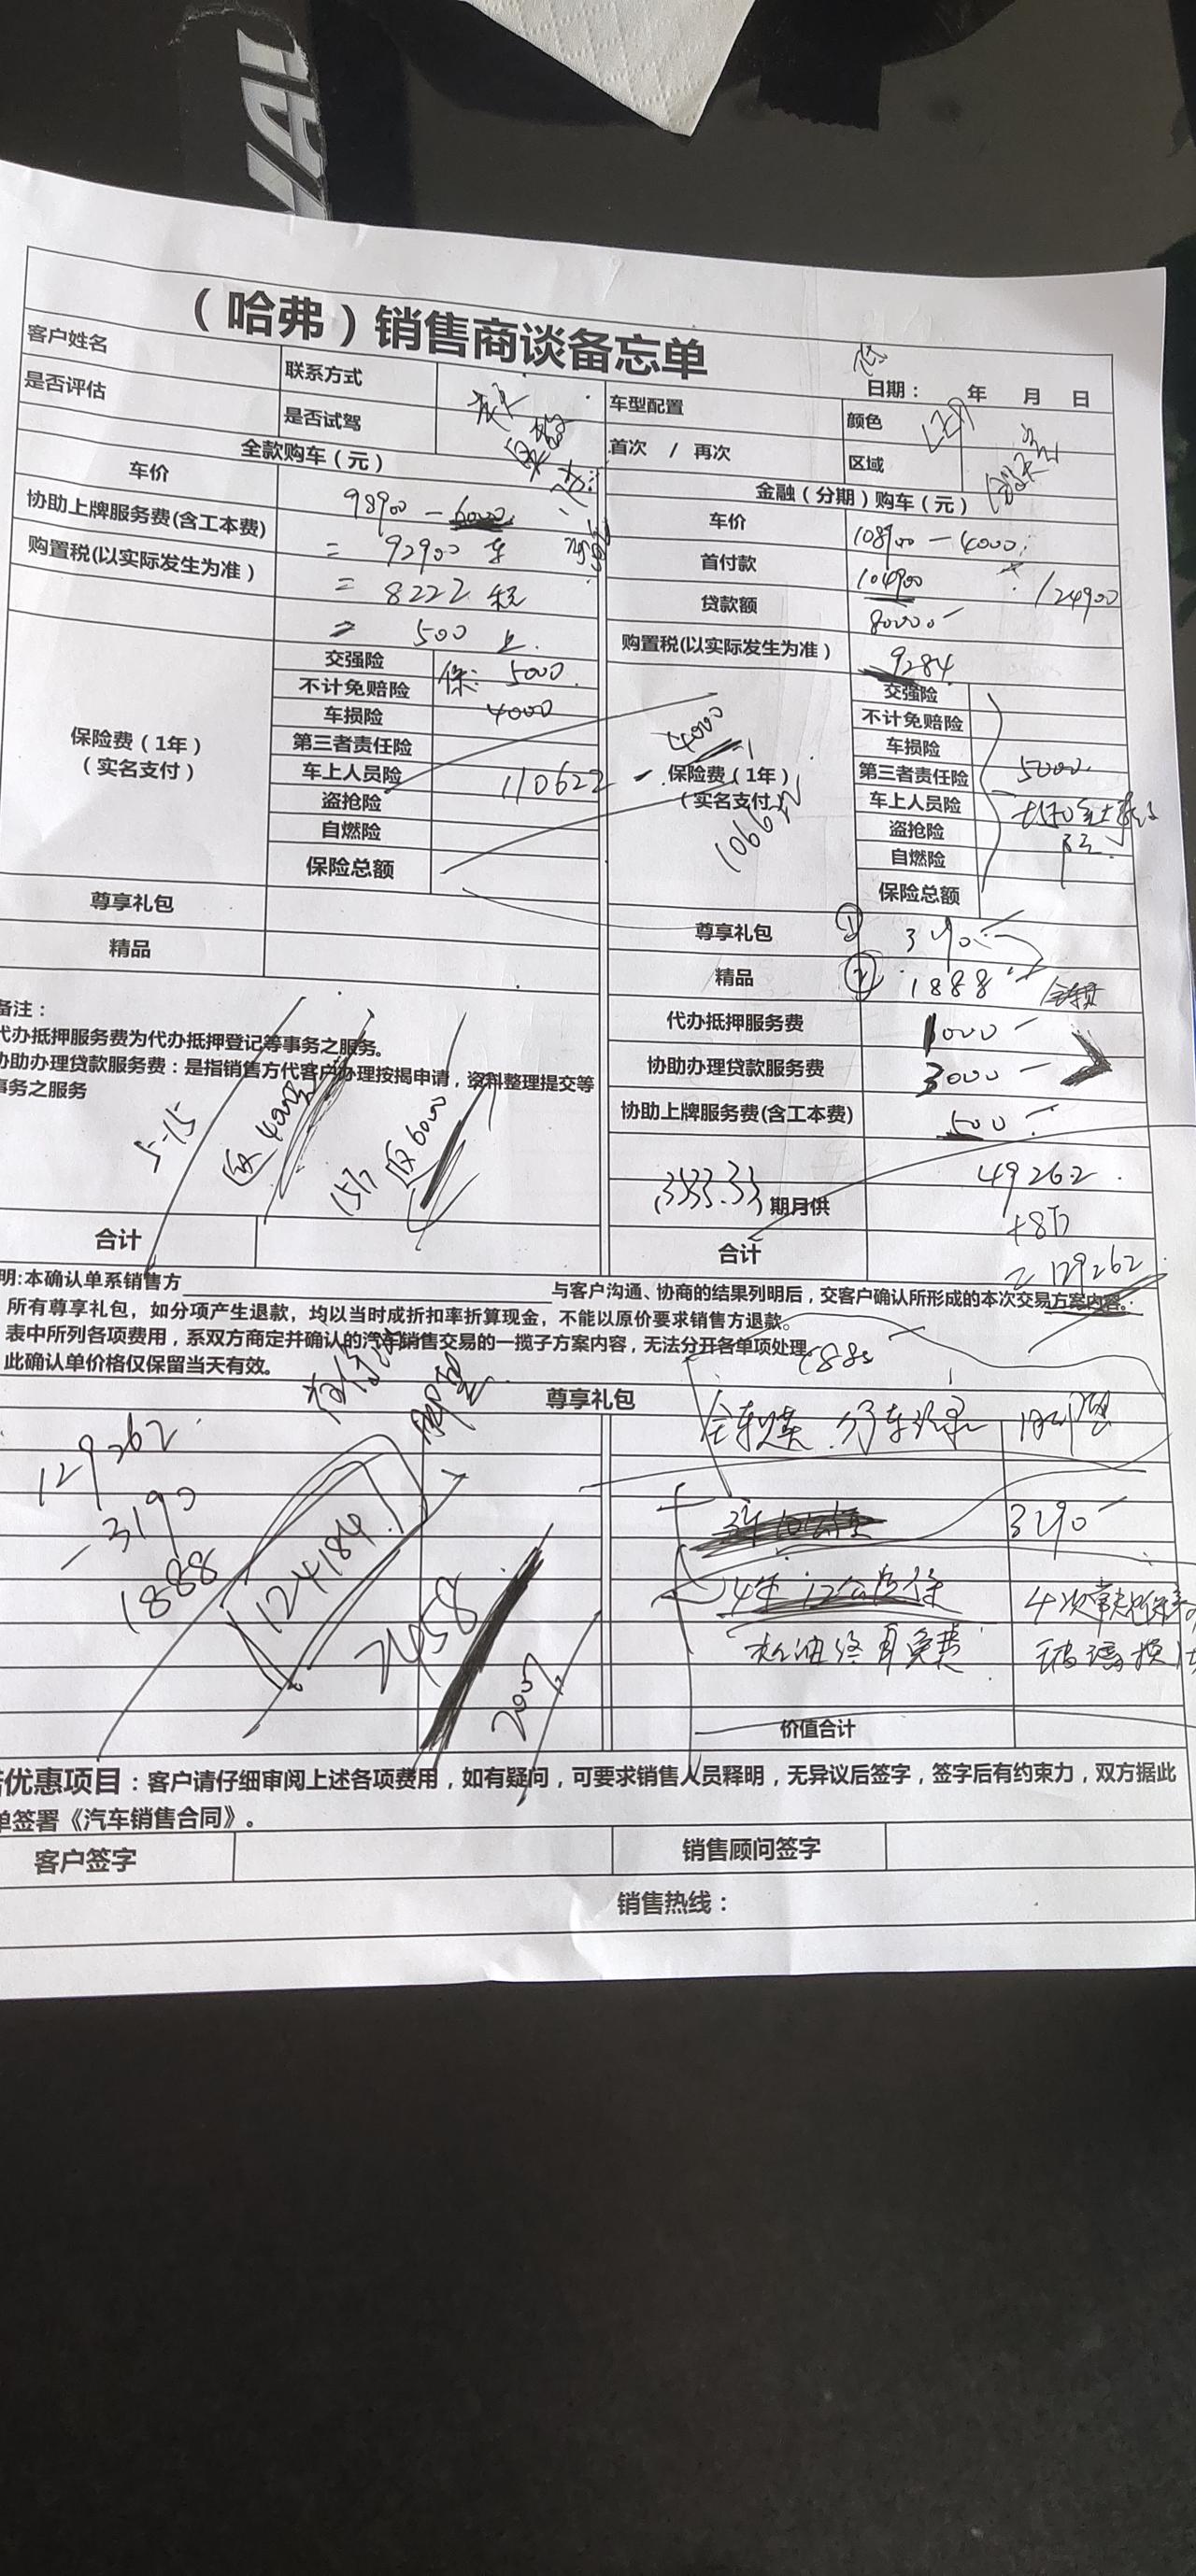 HAVAL
（哈弗）销售商谈备忘单
日期： 年 月 日
客户姓名
联系方式
车型配置
颜色
是否评估
是否试驾
首次 / 再次
区域
全款购车（元）
金融（分期）购车（元）
车价
98900 - 6000
车价
108900 - 4000
协助上牌服务费(含工本费)
= 92900 车
首付款
104900
124900
购置税(以实际发生为准)
= 8222 税
贷款额
80000
= 500 上
购置税(以实际发生为准)
9284
保险费（1年）
（实名支付）
交强险
保: 5000
不计免赔险
4000
车损险
第三者责任险
车上人员险
110622
盗抢险
自燃险
保险总额
4000
保险费（1年）
（实名支付）
10662
交强险
不计免赔险
车损险
第三者责任险
5000
车上人员险
盗抢险
自燃险
保险总额
尊享礼包
精品
尊享礼包
① 3190
精品
② 1888
代办抵押服务费
1000
协助办理贷款服务费
3000
协助上牌服务费(含工本费)
500
49262
3333.33
期月供
+8万
合计
= 129262
备注：
代办抵押服务费为代办抵押登记等事务之服务。
协助办理贷款服务费：是指销售方代客户办理按揭申请，资料整理提交等
事务之服务
5-15
返4000
15万
返6000
合计
明:本确认单系销售方 与客户沟通、协商的结果列明后，交客户确认所形成的本次交易方案内容。
所有尊享礼包，如分项产生退款，均以当时成折扣率折算现金，不能以原价要求销售方退款。
表中所列各项费用，系双方商定并确认的汽车销售交易的一揽子方案内容，无法分开各单项处理
此确认单价格仅保留当天有效。
1888
尊享礼包
129262
- 3190
1888
124184
2458
3190
4年12公里保
机油终身免费
价值合计
优惠项目：客户请仔细审阅上述各项费用，如有疑问，可要求销售人员释明，无异议后签字，签字后有约束力，双方据此
单签署《汽车销售合同》。
客户签字
销售顾问签字
销售热线：